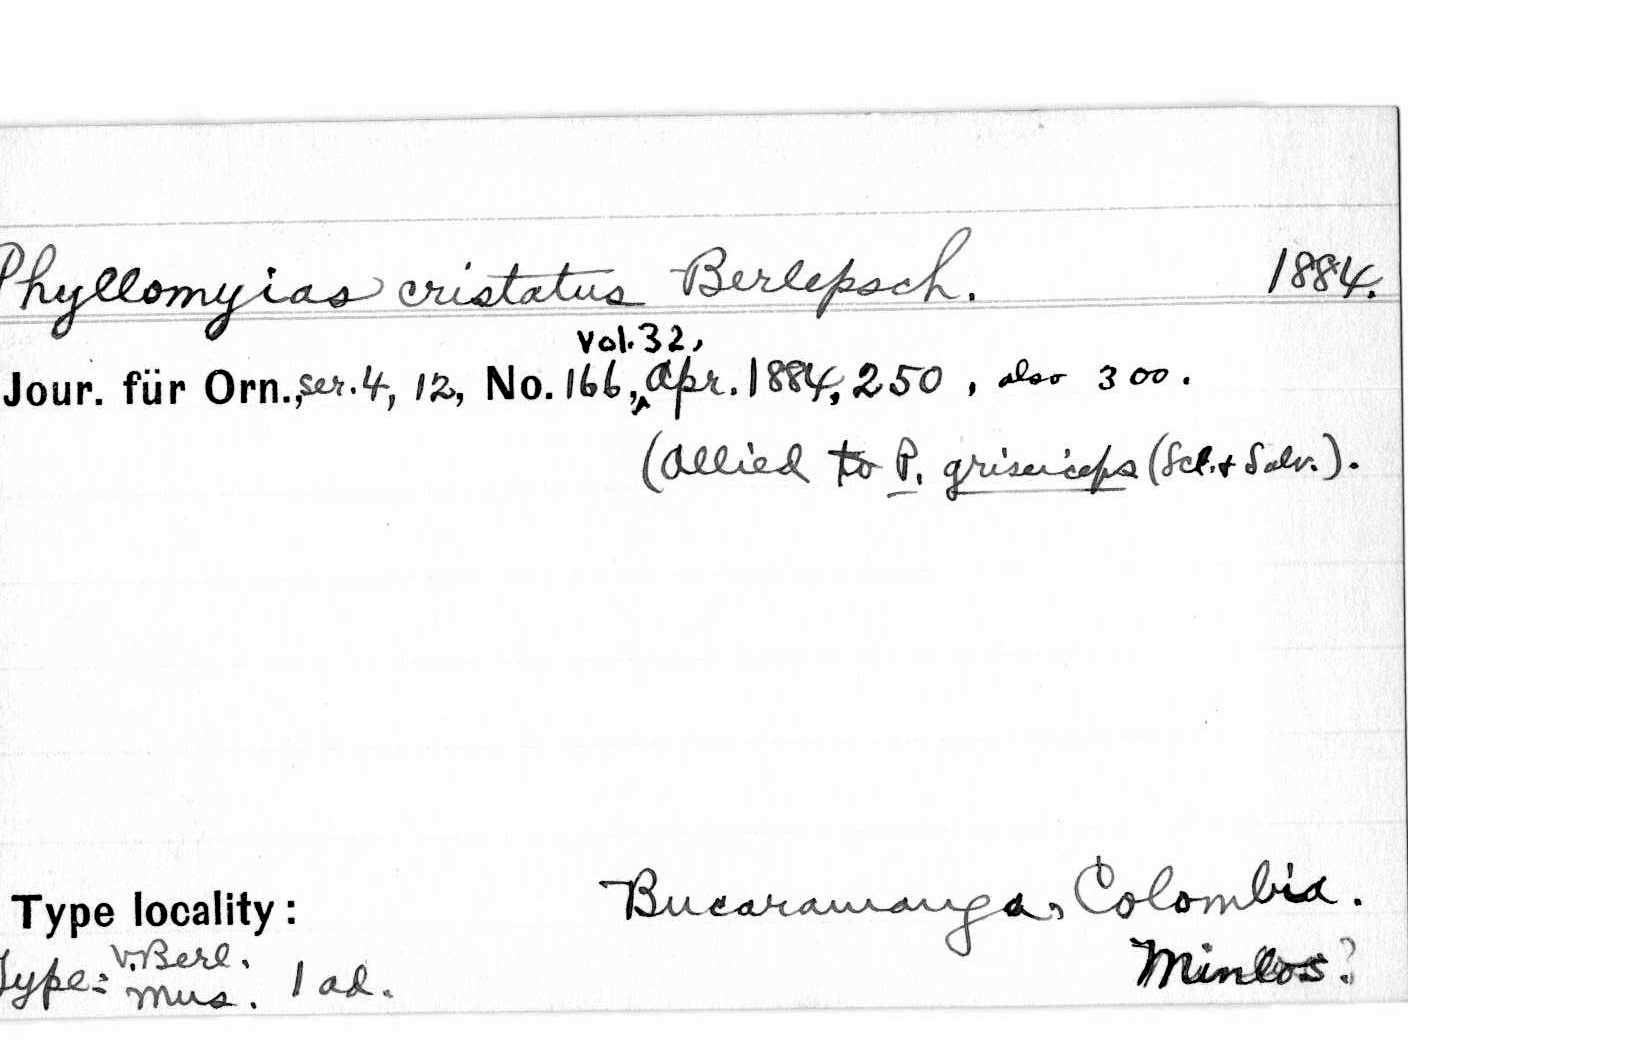 Phyllomyias cristatus Berlepsch. 1884.
vol. 32,
Jour. für Orn., ser. 4, 12, No. 166, Apr. 1884, 250, also 300.
(Allied to P. griseiceps (Scl. + Salv.).
Type locality: Bucaramanga, Colombia.
Type: v. Berl. Mus. 1 ad. Minlos?